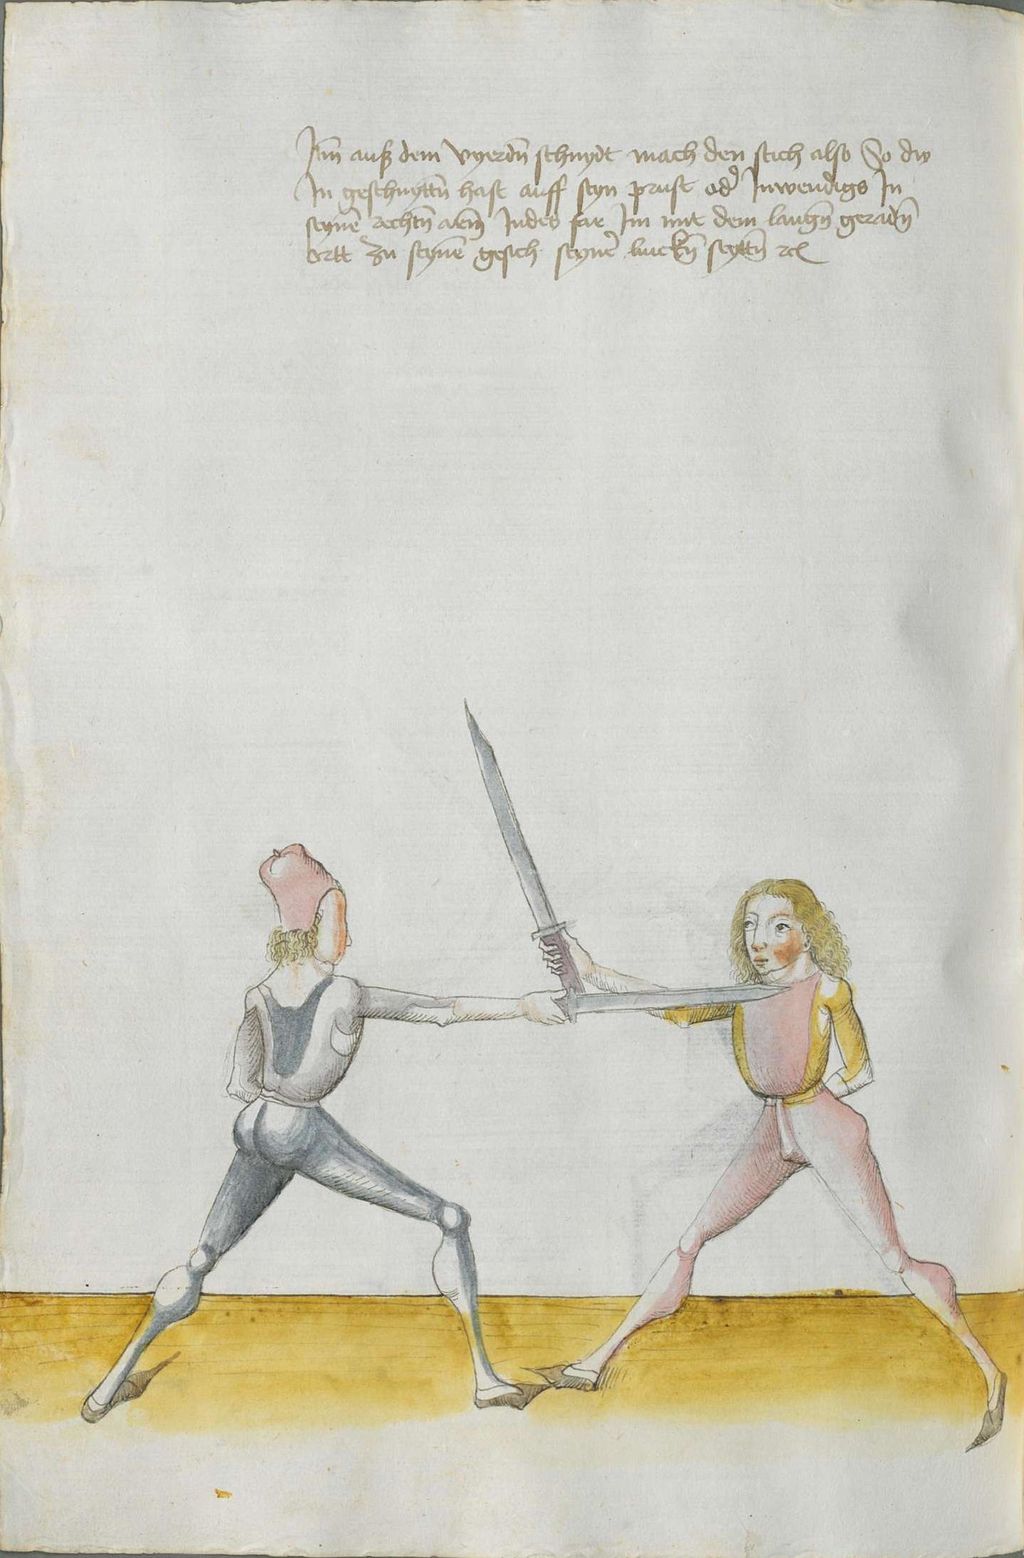 Itm̄ auß dem vyerdn̄ schnydt mach den stich also So dw
In geschnyttn̄ hast auff seyn prust od' Inwendigs In
seynē rechtn̄ arm̄ Indes far Im mit dem langn̄ geradn̄
ortt zu seynē gesich seyner linckn̄ seyttn̄ rcl